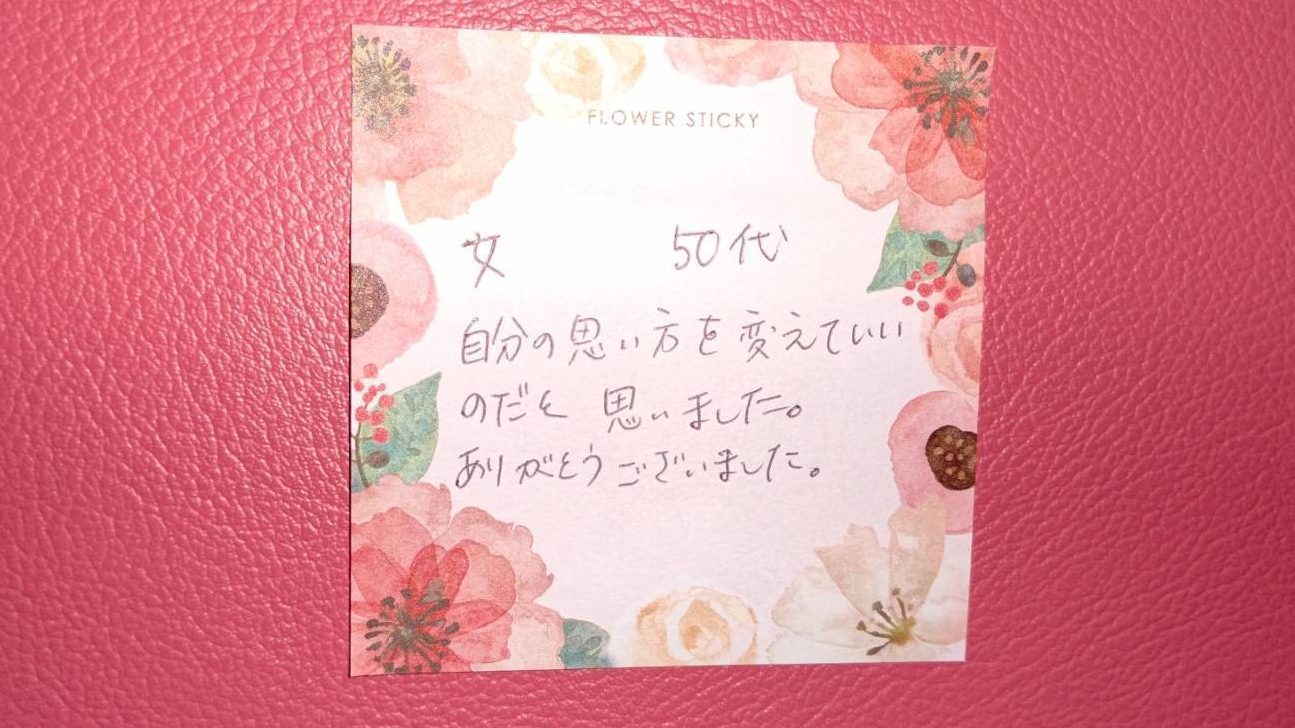 FLOWER STICKY
女 50代
自分の思い方を変えていい
のだと 思いました。
ありがとうございました。